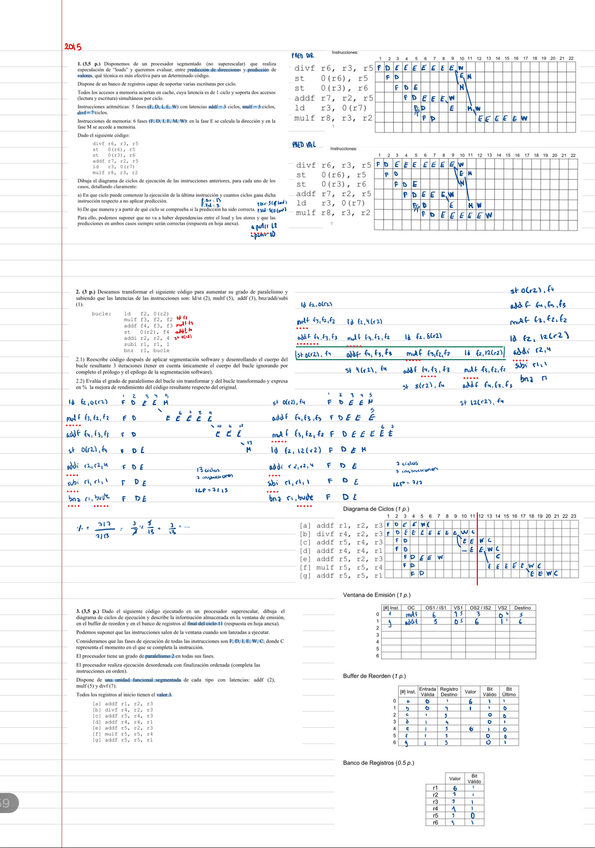 2015
1. (3,5 p.) Disponemos de un procesador segmentado (no superescalar) que realiza
especulación de "loads" y queremos evaluar, entre predicción de direcciones y predicción de
valores, qué técnica es más efectiva para un determinado código.
Dispone de un banco de registros capaz de soportar varias escrituras por ciclo
Todos los accesos a memoria aciertan en cache, cuya latencia es de 1 ciclo y soporta dos accesos
(lectura y escritura) simultáneos por ciclo.
Instrucciones aritméticas: 5 fases (F, D, I, E, W) con latencias
Instrucciones de memoria: 6 fases (F, D, I, E, M, W) en la fase E se calcula la dirección y en la
fase M se accede a memoria.
Dado el siguiente código:
divf r6, r3, r5
st 0(r6), r5
st 0(r3), r6
addf r7, r2, r5
ld r3, 0(r7)
mulf r8, r3, r2
Dibuja el diagrama de ciclos de ejecución de las instrucciones anteriores, para cada uno de los
casos, detallando claramente:
a) En que ciclo puede comenzar la ejecución de la última instrucción y cuantos ciclos gana dicha
instrucción respecto a no aplicar predicción.
b) De que manera y a partir de que ciclo se comprueba si la predicción ha sido correcta.
Para ello, podemos suponer que no va a haber dependencias entre el load y los stores y que las
predicciones en ambos casos siempre serán correctas (respuesta en hoja anexa).
PRED DIR
Instrucciones:
1 2 3 4 5 6 7 8 9 10 11 12 13 14 15 16 17 18 19 20 21 22
divf r6, r3, r5 F D E E E E E E E W
st 0(r6), r5 F D E M
st 0(r3), r6 F D E M
addf r7, r2, r5 F D E E E W
ld r3, 0(r7)
mulf r8, r3, r2 F D E E E E E W
PRED VAL
Instrucciones:
1 2 3 4 5 6 7 8 9 10 11 12 13 14 15 16 17 18 19 20 21 22
divf r6, r3, r5 F D E E E E E E E W
st 0(r6), r5 F D
st 0(r3), r6 F D E
addf r7, r2, r5 F D E E E W
ld r3, 0(r7)
mulf r8, r3, r2 F D E E E E E W
2. (3 p.) Deseamos transformar el siguiente código para aumentar su grado de paralelismo y
sabiendo que las latencias de las instrucciones son: Ld/st (2), mulf (5), addf (3), bnz/addi/subi
(1).
bucle: ld f2, 0(r2)
mulf f3, f2, f2
addf f4, f3, f3
st 0(r2), f4
addi r2, r2, 4
subi r1, r1, 1
bnz r1, bucle
2.1) Reescribe código después de aplicar segmentación software y desenrollando el cuerpo del
bucle resultante 3 iteraciones (tener en cuenta únicamente el cuerpo del bucle ignorando por
completo el prólogo y el epílogo de la segmentación software).
2.2) Evalúa el grado de paralelismo del bucle sin transformar y del bucle transformado y expresa
en % la mejora de rendimiento del código resultante respecto del original.
ld f2, 0(r2)
mulf f3, f2, f2 ld f2, 4(r2)
addf f4, f3, f3 mulf f3, f2, f2 ld f2, 8(r2)
st 0(r2), f4 addf f4, f3, f3 mulf f3, f2, f2 ld f2, 12(r2)
st 4(r2), f4 addf f4, f3, f3 mulf f3, f2, f2
st 8(r2), f4 addf f4, f3, f3
st 12(r2), f4
st 0(r2), f4
addf f4, f3, f3
mulf f3, f2, f2
ld f2, 12(r2)
addi r2, 4
subi r1, 1
bnz r1
ld f2, 0(r2) F D E E M
mulf f3, f2, f2 F D E E E E E
addf f4, f3, f3 F D E E E
st 0(r2), f4 F D E M
addi r2, r2, 4 F D E
subi r1, r1, 1 F D E
bnz r1, bucle F D E
13 ciclos
7 instrucciones
ILP = 7/13
st 0(r2), f4 F D E E M
addf f4, f3, f3 F D E E E
mulf f3, f2, f2 F D E E E E E
ld f2, 12(r2) F D E M
addi r2, r2, 4 F D E
subi r1, r1, 1 F D E
bnz r1, bucle F D E
7 instrucciones
Diagrama de Ciclos (1 p.)
1 2 3 4 5 6 7 8 9 10 11 12 13 14 15 16 17 18 19 20 21 22 23
[a] addf r1, r2, r3 F D E E W C
[b] divf r4, r2, r3 F D E E E E E E E W C
[c] addf r5, r4, r3 F D E E W C
[d] addf r4, r4, r1 F D E E W C
[e] addf r5, r2, r3 F D E E W C
[f] mulf r5, r5, r4 F D E E E E E W C
[g] addf r5, r5, r1 F D E E W C
3. (3,5 p.) Dado el siguiente código ejecutado en un procesador superescalar, dibuja el
diagrama de ciclos de ejecución y describe la información almacenada en la ventana de emisión,
en el buffer de reorden y en el banco de registros al final del ciclo 11 (respuesta en hoja anexa).
Podemos suponer que las instrucciones salen de la ventana cuando son lanzadas a ejecutar.
Consideramos que las fases de ejecución de todas las instrucciones son F, D, I, E, W, C; donde C
representa el momento en el que se completa la instrucción.
El procesador tiene un grado de paralelismo 2 en todas sus fases.
El procesador realiza ejecución desordenada con finalización ordenada (completa las
instrucciones en orden).
Dispone de una unidad funcional segmentada de cada tipo con latencias: addf (2),
mulf (5) y divf (7).
Todos los registros al inicio tienen el valor 3.
[a] addf r1, r2, r3
[b] divf r4, r2, r3
[c] addf r5, r4, r3
[d] addf r4, r4, r1
[e] addf r5, r2, r3
[f] mulf r5, r5, r4
[g] addf r5, r5, r1
Ventana de Emisión (1 p.)
[#] Inst. OC OS1 / IS1 VS1 OS2 / IS2 VS2 Destino
0
1
2
3
4
5
6
Buffer de Reorden (1 p.)
[#] Inst. Entrada Válida Registro Destino Valor Bit Válido Bit Último
0
1
2
3
4
5
6
Banco de Registros (0.5 p.)
Valor Bit Válido
r1 6 1
r2 3 1
r3 3 1
r4
r5 3 0
r6 3 1
59